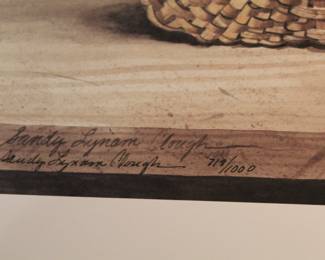 Sandy Lynam Clough
Sandy Lynam Clough 719/1000